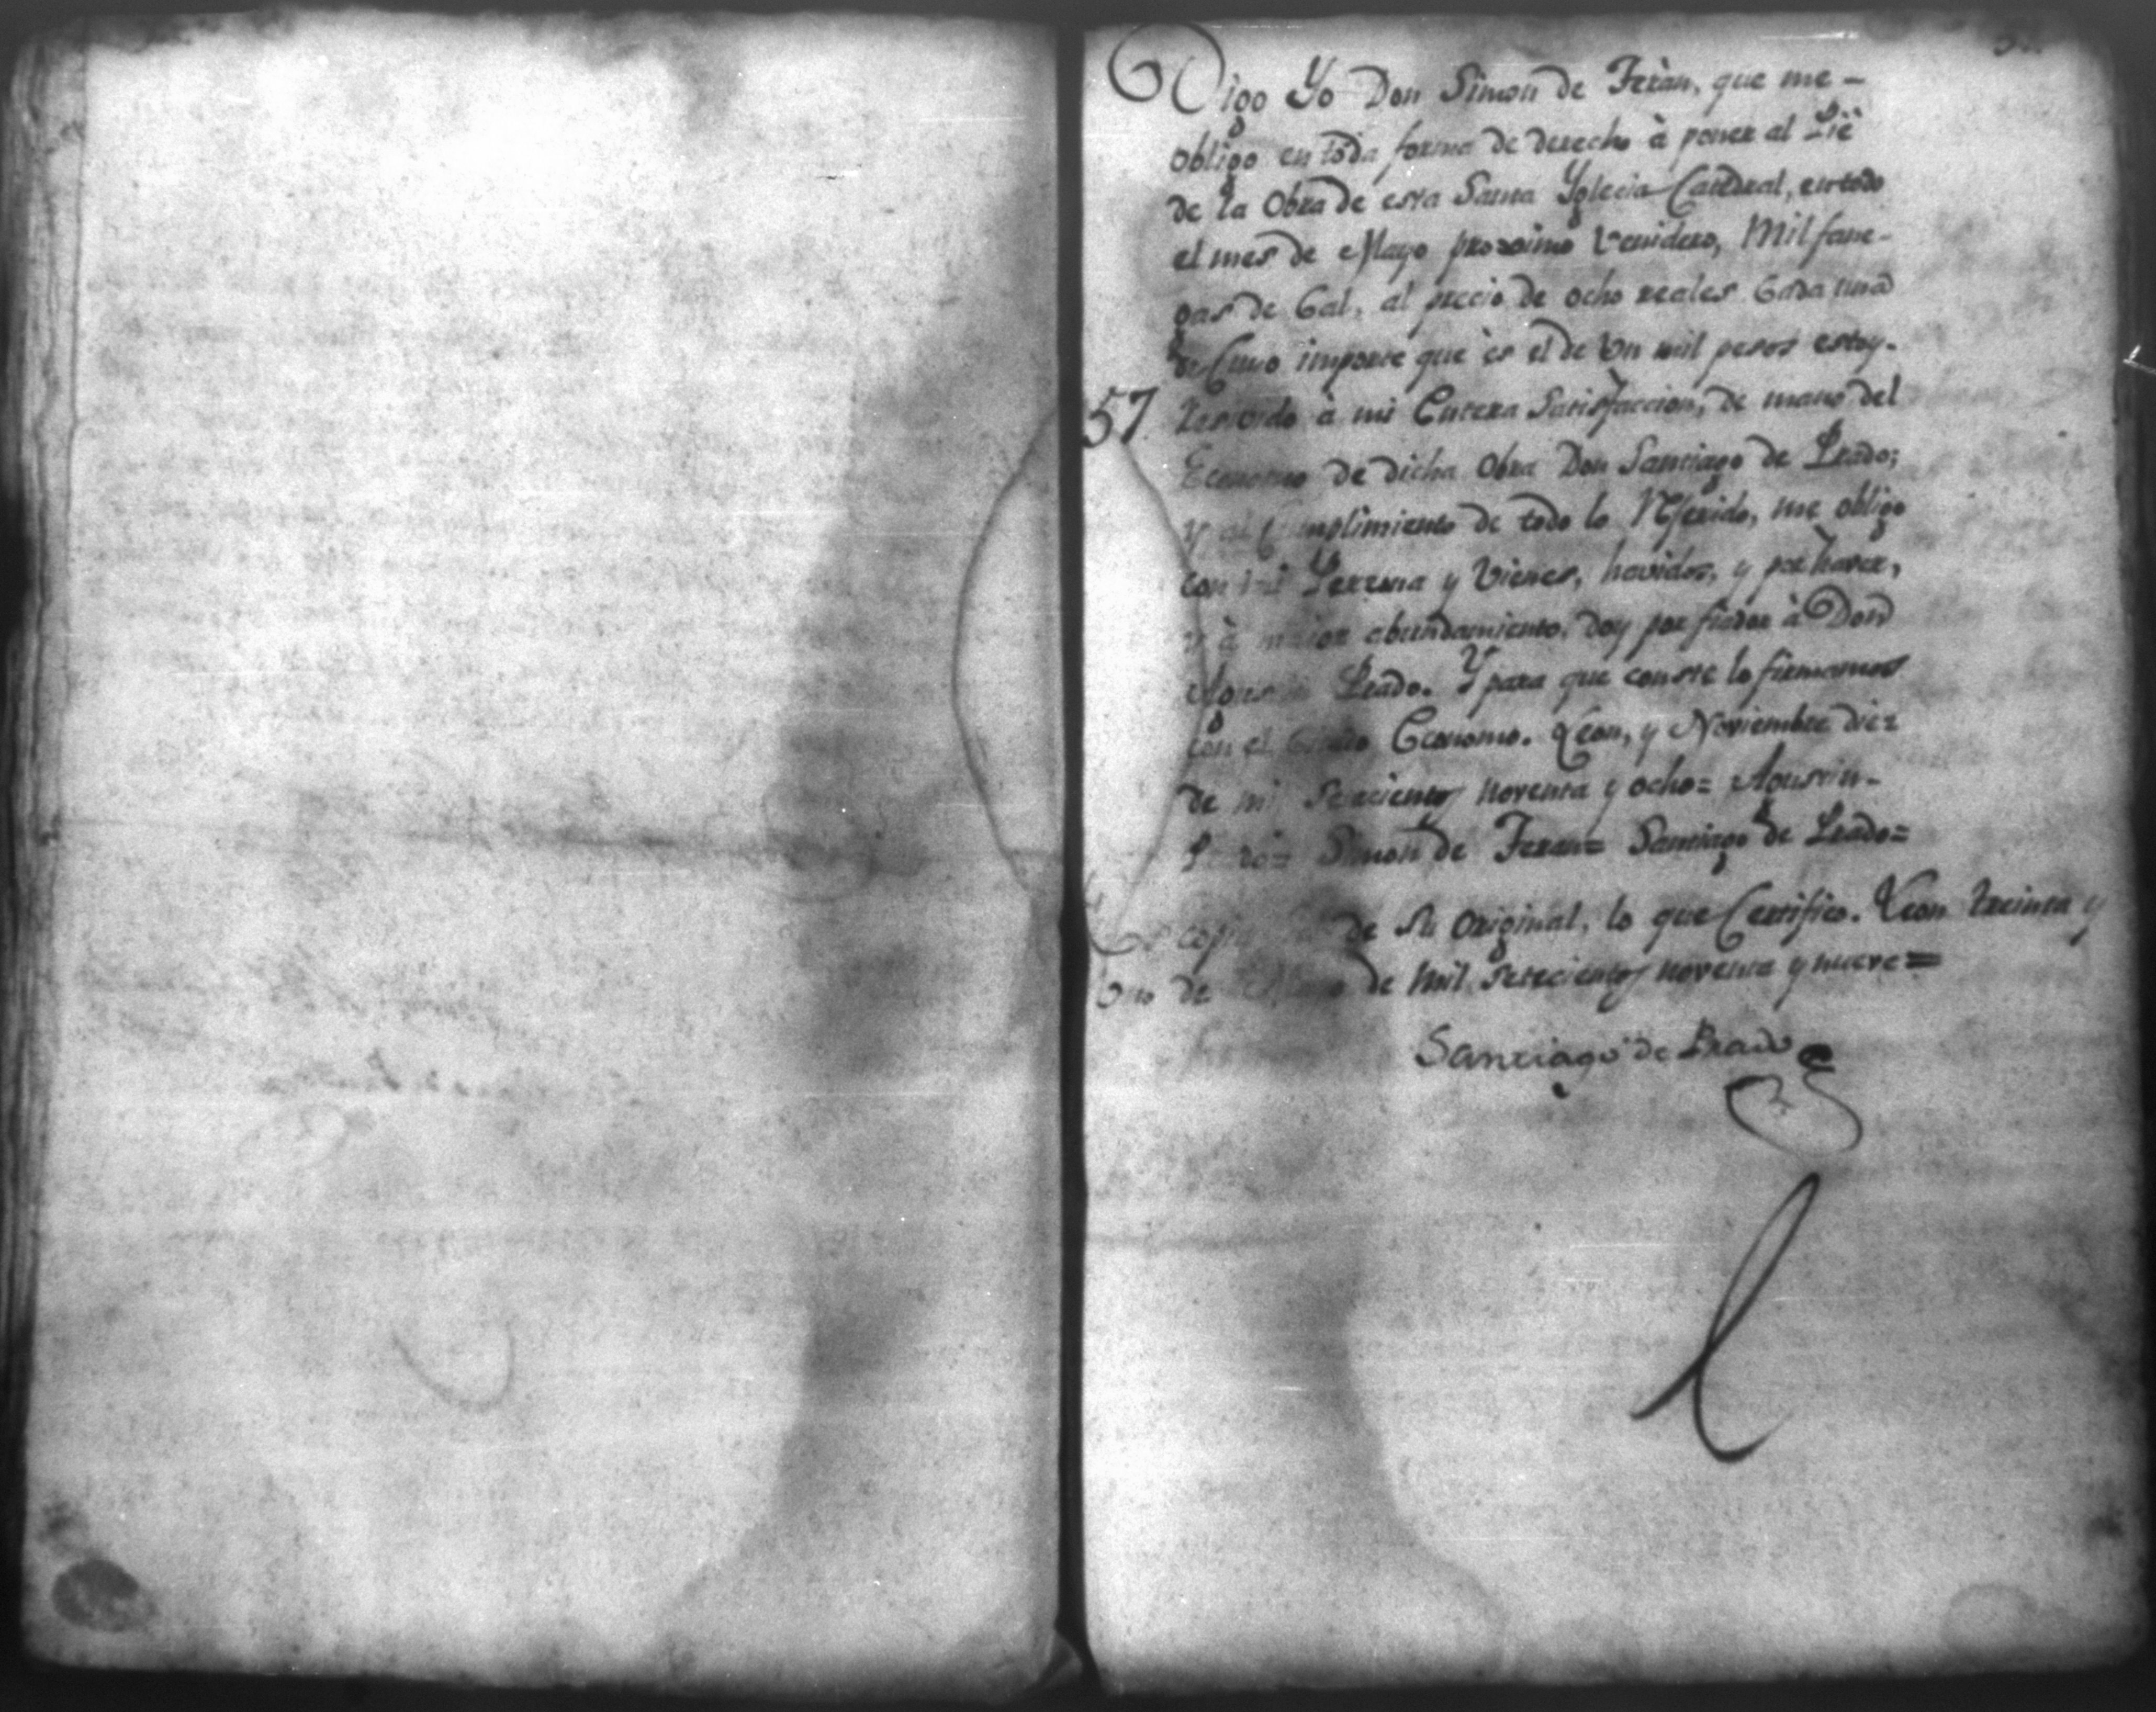 Digo Yo Don Simon de Teràn, que me-
obligo en toda forma de derecho à poner al Pie
de la Obra de esta Santa Yglecia Catedral, en todo
el mes de Mayo proximo Venidero, Mil fane-
gas de Cal, al precio de ocho reales Cada una
de Cuio importe que ès el de Un mil pesos estoy-
57 Recivido à mi Entera Satisfaccion, de mano del
Economo de dicha Obra Don Santiago de Prado;
y al Cumplimiento de todo lo Referido, me obligo
con mi Perzona y Vienes, havidos, y por haver,
y à maior abundamiento, doy por fiador à Don
Agustin Prado. Y para que conste lo firmamos
con el Economo. Leon, y Noviembre diez
de mil Setecientos noventa y ocho= Agustin-
Prado= Simon de Teran= Santiago de Prado=
Es copia de Su Original, lo que Certifico. Leon treinta y
Uno de Mayo de Mil Setecientos noventa y nueve=
Santiago de Prado